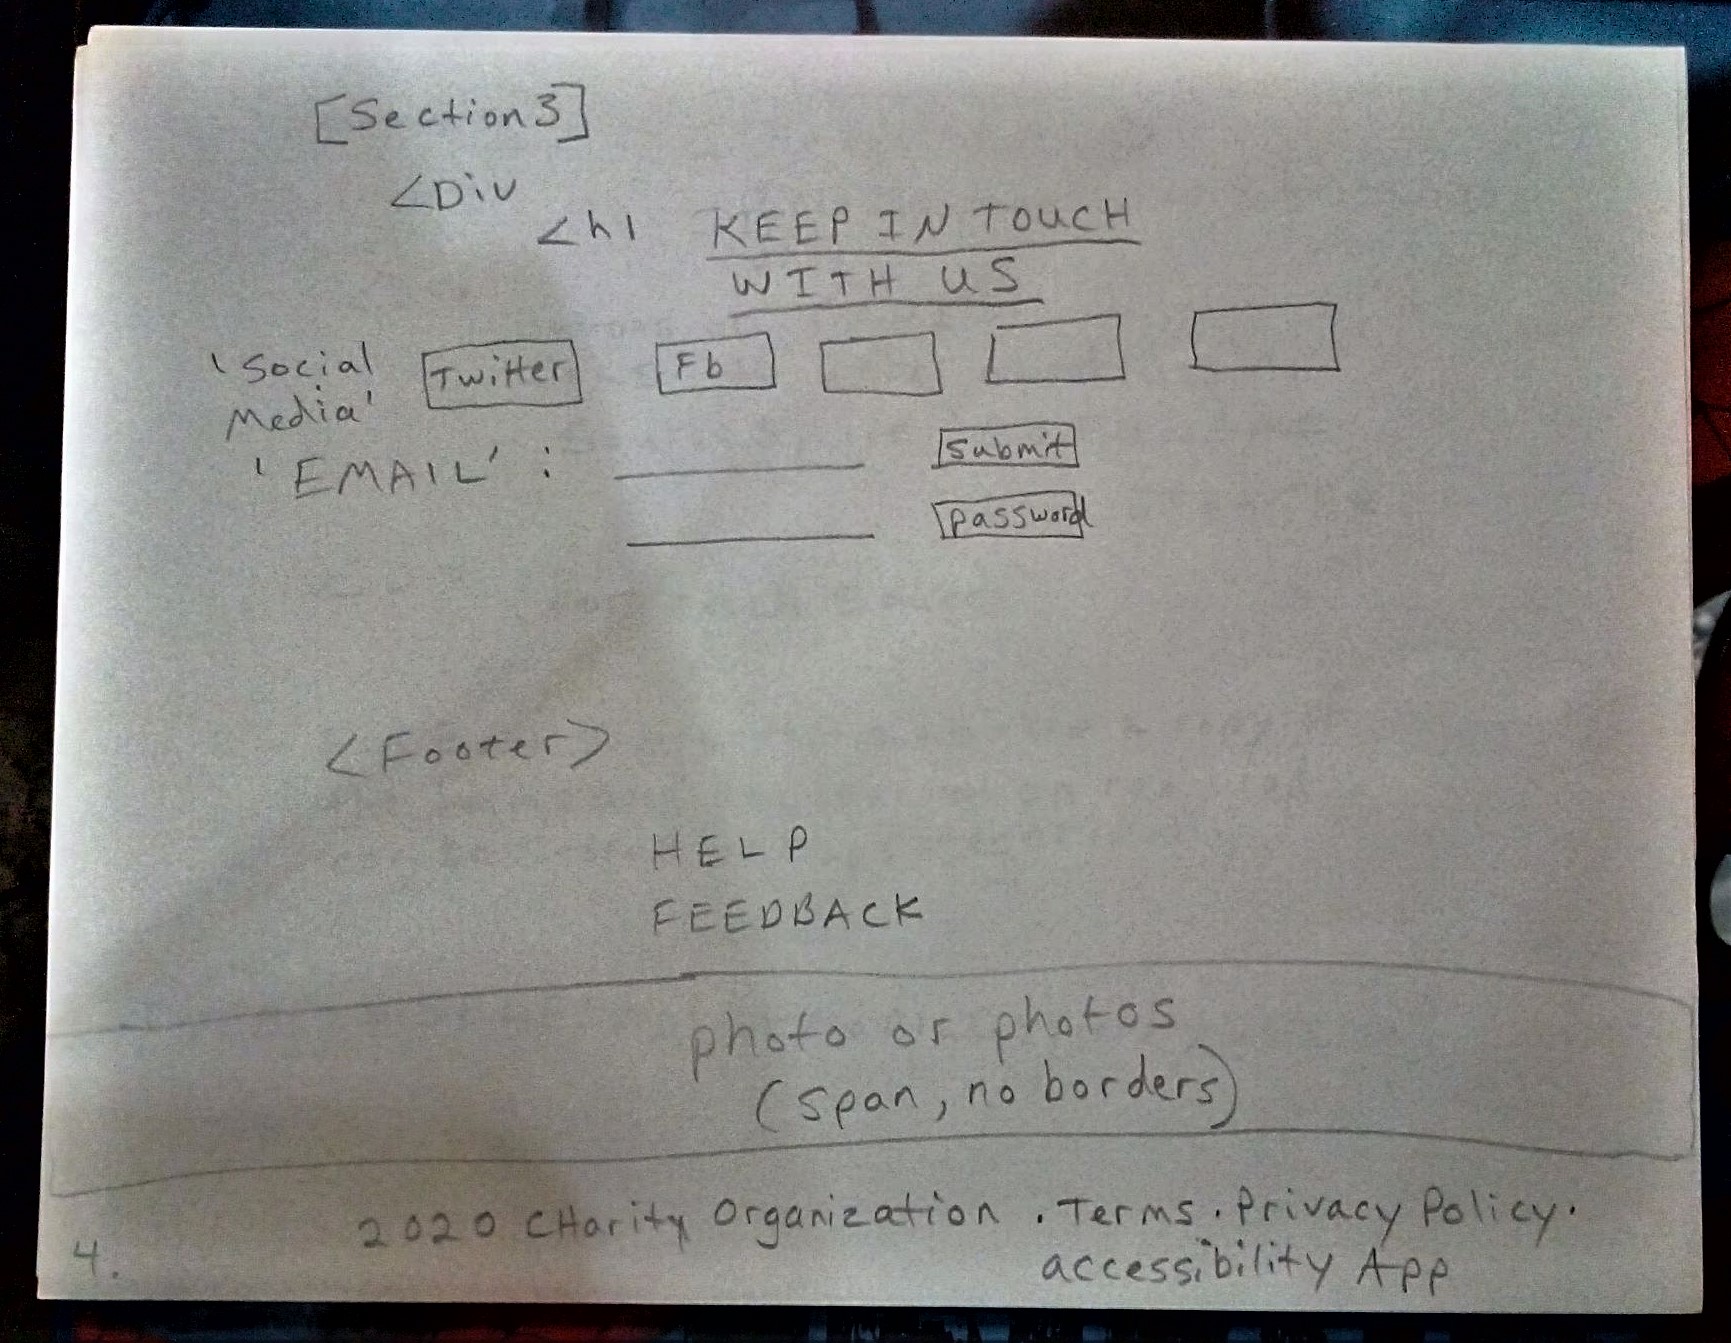 [Section 3]
<Div
<h1 KEEP IN TOUCH
WITH US
'Social Media' Twitter Fb
'EMAIL' : Submit
password
<Footer>
HELP
FEEDBACK
photo or photos
(span, no borders)
2020 CHarity Organization . Terms . Privacy Policy .
accessibility App
4.